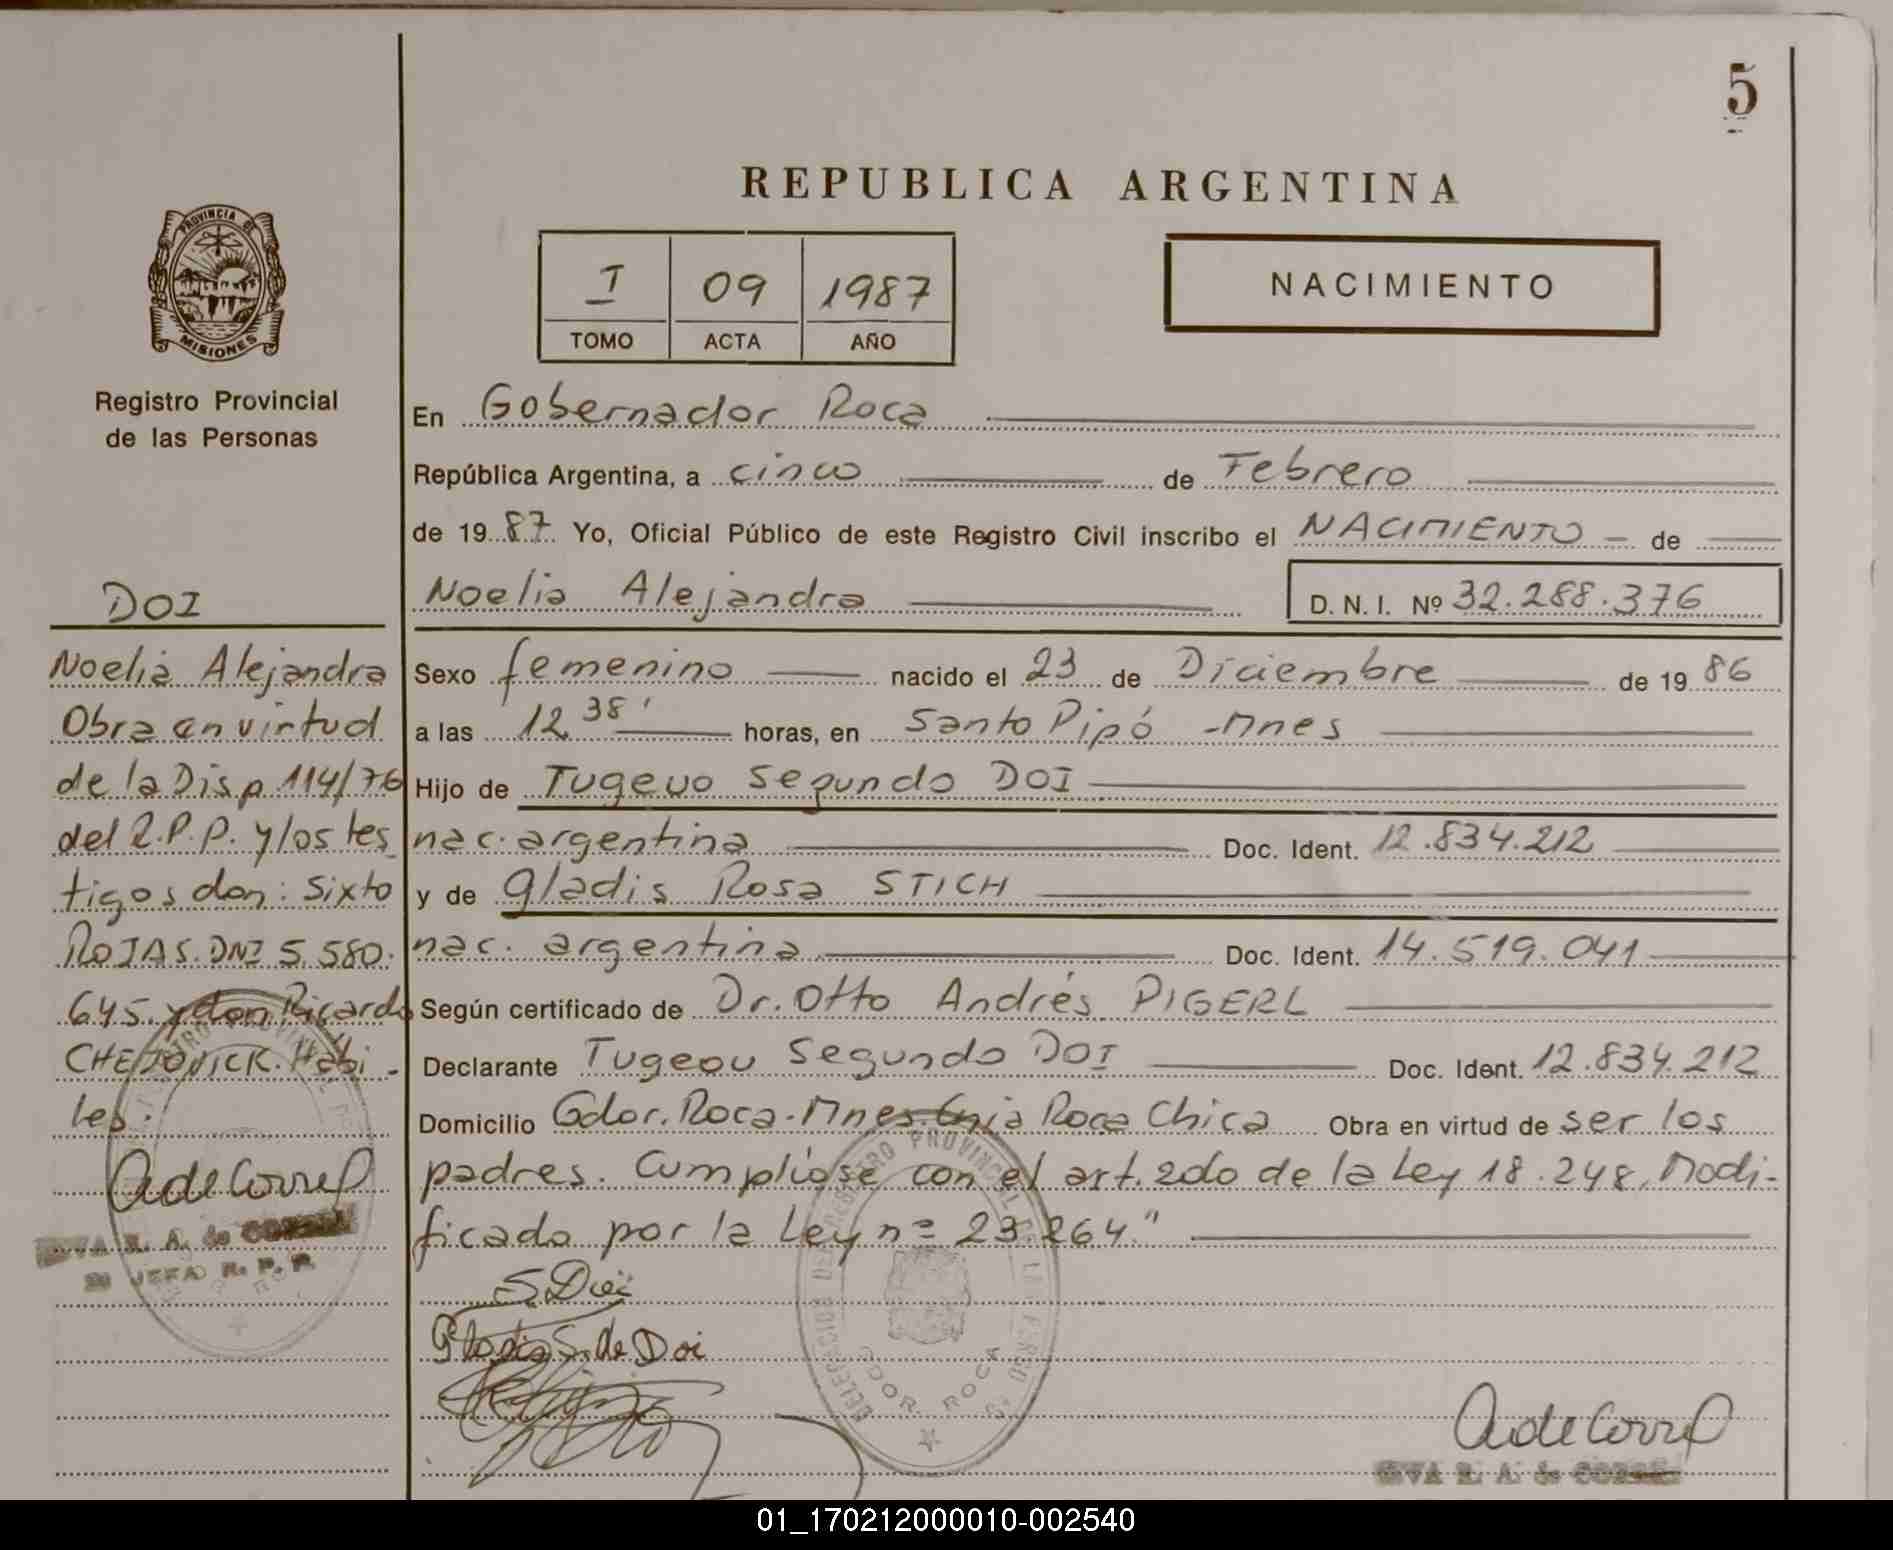 5
REPUBLICA ARGENTINA
PROVINCIA DE
MISIONES
Registro Provincial
de las Personas
I 09 1987
TOMO ACTA AÑO
NACIMIENTO
En Gobernador Roca
República Argentina, a cinco de Febrero
de 1987 Yo, Oficial Público de este Registro Civil inscribo el NACIMIENTO - de
Noelia Alejandra D. N. I. Nº 32.288.376
Sexo femenino nacido el 23 de Diciembre de 1986
a las 12 38' horas, en Santo Pipó - Mnes
Hijo de Tugeuo Segundo DOI
nac. argentina Doc. Ident. 12.834.212
y de Gladis Rosa STICH
nac. argentina Doc. Ident. 14.519.041
Según certificado de Dr. Otto Andrés PIGERL
Declarante Tugeou Segundo DOI Doc. Ident. 12.834.212
Domicilio Gdor. Roca - Mnes Roca Chica Obra en virtud de ser los
padres. Cumplióse con el art. 2do de la Ley 18.248, Modi-
ficado por la Ley nº 23.264"
DOI
Noelia Alejandra
Obra en virtud
de la Disp 114/76
del R.P.P. y los tes
tigos don: Sixto
ROJAS. DNI 5.580.
645. y don Ricardo
CHEJOVICK. Hábi -
les.
A de Correl
EVA R. A. de
JEFA R. P. P.
S. Doi
Gladis S. de Doi
DELEGACION DEL REGISTRO PROVINCIAL DE LAS PERSONAS
GDOR. ROCA
A de Correl
EVA R. A. de
01_170212000010-002540